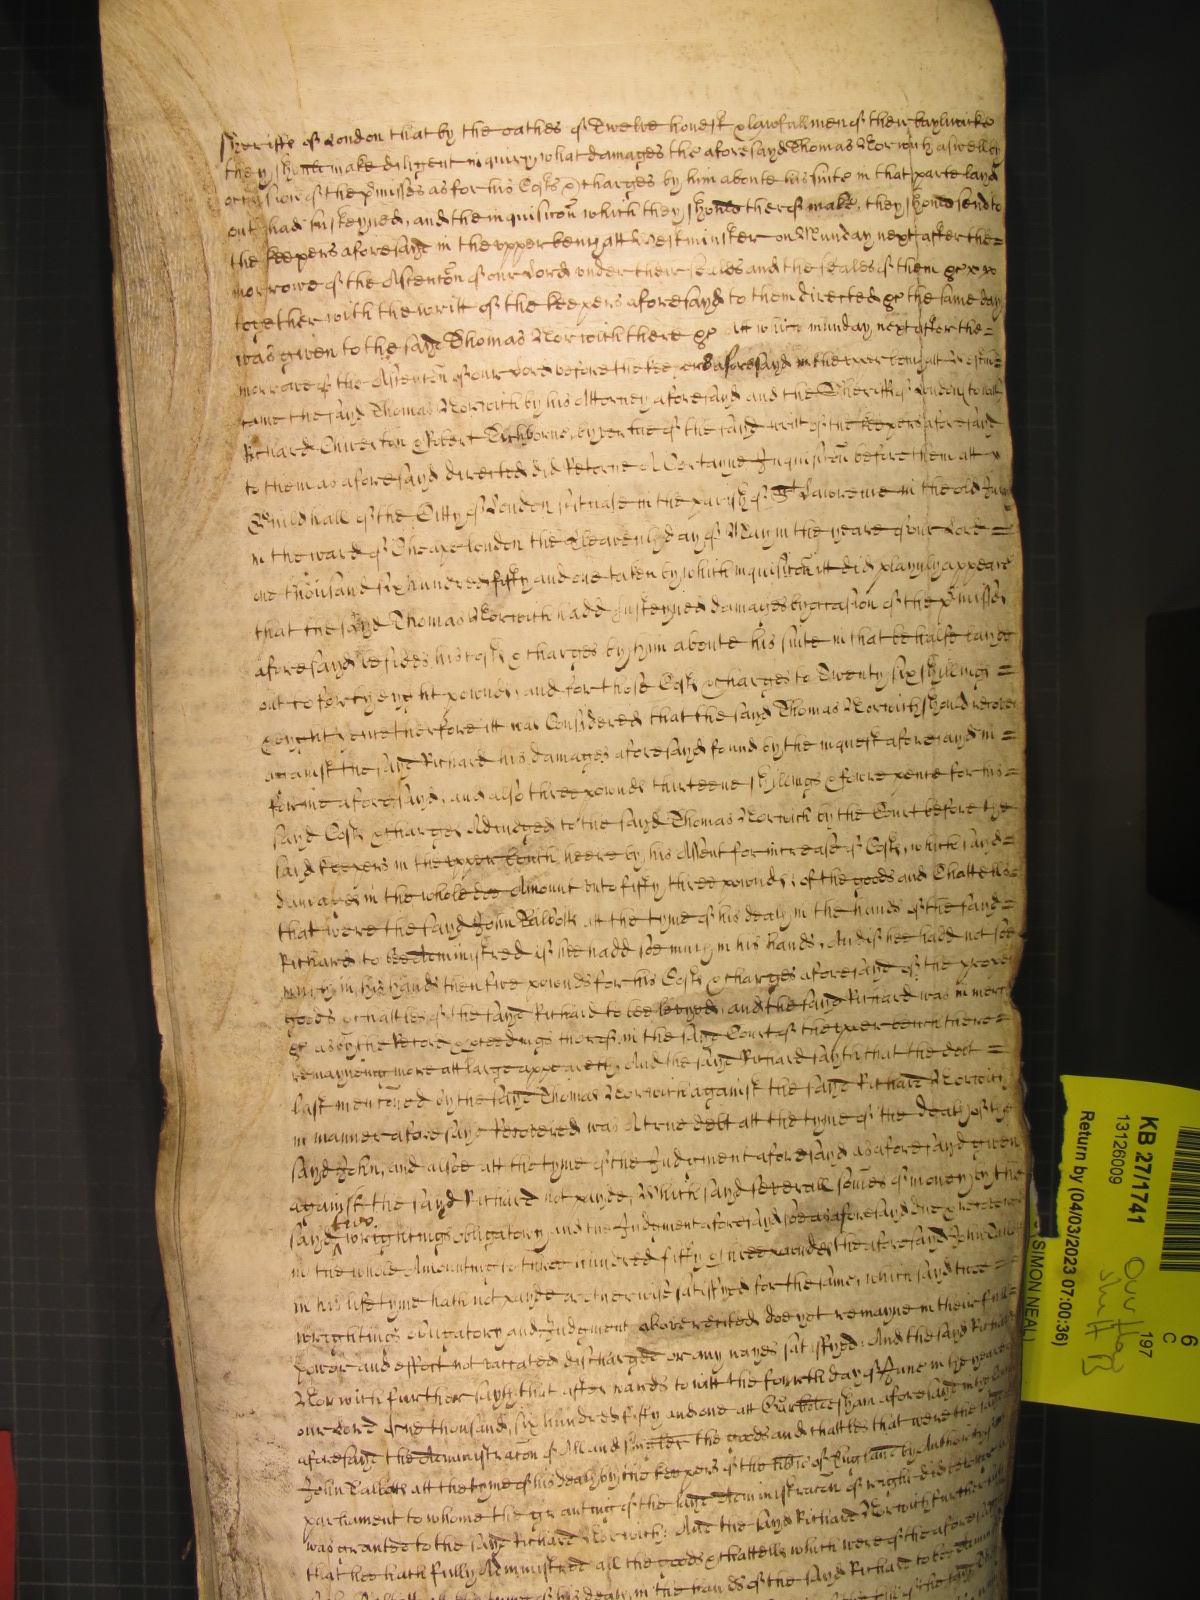 Sheriffs of London that by the oathes of Twelve honest & lawfull men of their bayliwicke
they should make diligent inquiry what damages the aforesayd Thomas Norwich aswell by
occasion of the p'misses as for his Costs & Charges by him aboute his suite in that parte layd
out had susteyned, and the inquisicon which they should therof make, they should send to
the keepers aforesayd in the upper bench att Westminster on Munday next after the =
morrowe of the Ascencon of our Lord under their seales and the seales of them &c
together with the writt of the keepers aforesayd to them directed &c the same day
was given to the sayd Thomas Norwich there &c Att which munday next after the =
morrowe of the Ascencon of our Lord before the keepers aforesayd in the upper bench att Westm =
came the sayd Thomas Norwich by his Attorney aforesayd and the Sheriffs of London to witt
Richard Chiverton & Robert Tichborne, by vertue of the sayd writt of the keepers aforesayd
to them as aforesayd directed did Retorne A Certayne Inquisicon before them att
Guildhall of the Citty of London scituate in the parish of St Lawrence in the old Jury
in the ward of Cheape London the Eleaventh day of May in the yeare of our Lord =
one thousand six hundred fifty and one taken by which inquisicon itt did playnly appeare
that the sayd Thomas Norwich hadd susteyned damages by occasion of the p'misses
aforesayd besides his costs & charges by him aboute his suite in that behalfe layd
out to forty eyght pownds, and for those Costs & Charges to Twenty six shillings =
& eyght pence therfore itt was Considered that the sayd Thomas Norwich should recover
against the sayd Richard his damages aforesayd found by the inquest aforesayd in =
forme aforesayd, and also three pownds thirteene shillings & foure pence for his =
sayd Costs & charges Adiudged to the sayd Thomas Norwich by the Court before the
said keepers in the upper bench heere by his Assent for increase of Costs, which sayd =
damages in the whole doe Amount unto fifty three pownds, of the goods and Chattells =
that were the sayd John Talbott att the tyme of his death in the hands of the sayd =
Richard to bee Administred if hee hadd soe much in his hands, And if hee hadd not soe
much in his hands then five pownds for his Costs & charges aforesayd of the proper
goods & chattles of the sayd Richard to bee levyed, and the sayd Richard was in mercy
&c as by the Record & p'ceedings therof in the sayd Court of the upper bench there =
remayneing more att large appeareth, And the sayd Richard sayth that the debt =
last mencioned by the sayd Thomas Norwich against the sayd Richard Norwich
in manner aforesayd Recovered was A true debt att the tyme of the death of the
sayd John, and alsoe att the tyme of the Judgment aforesayd as aforesayd given
against the sayd Richard not payde, Which sayd severall somes of money by the
sayd two wrightings obligatory and the Judgment aforesayd soe as aforesayd due & recovered
in the whole Amounting to three hundred fifty & three pownds the aforesayd John Talbott
in his life tyme hath not payde or otherwise satisfyed for the same, which sayd twoe =
wrightings obligatory and Judgment above recited doe yet remayne in their full =
power and effect not vaccated discharged or any wayes satisfyed: And the sayd Richard
Norwich further sayth that afterwards to witt the fourth day of June in the yeare of
our Lord One thousand, six hundred fifty and one att aforesayd in the
aforesayd the Administracon of All and singler the goods and chattles that were the sayd
John Talbott att the tyme of his death by the keepers of the lib'tie of England by Authority of
parliament to whome the granting of the sayd Administracon of right did belong
was granted to the sayd Richard Norwich: And the sayd Richard Norwich further
that hee hath fully Administred all the goods & chattells which were of the aforesayd
John Talbott att the tyme of his death in the hands of the sayd Richard to bee Administred
KB 27/1741
13126009
Return by (04/03/2023 07:00:36)
6
C
197
(SIMON NEAL)